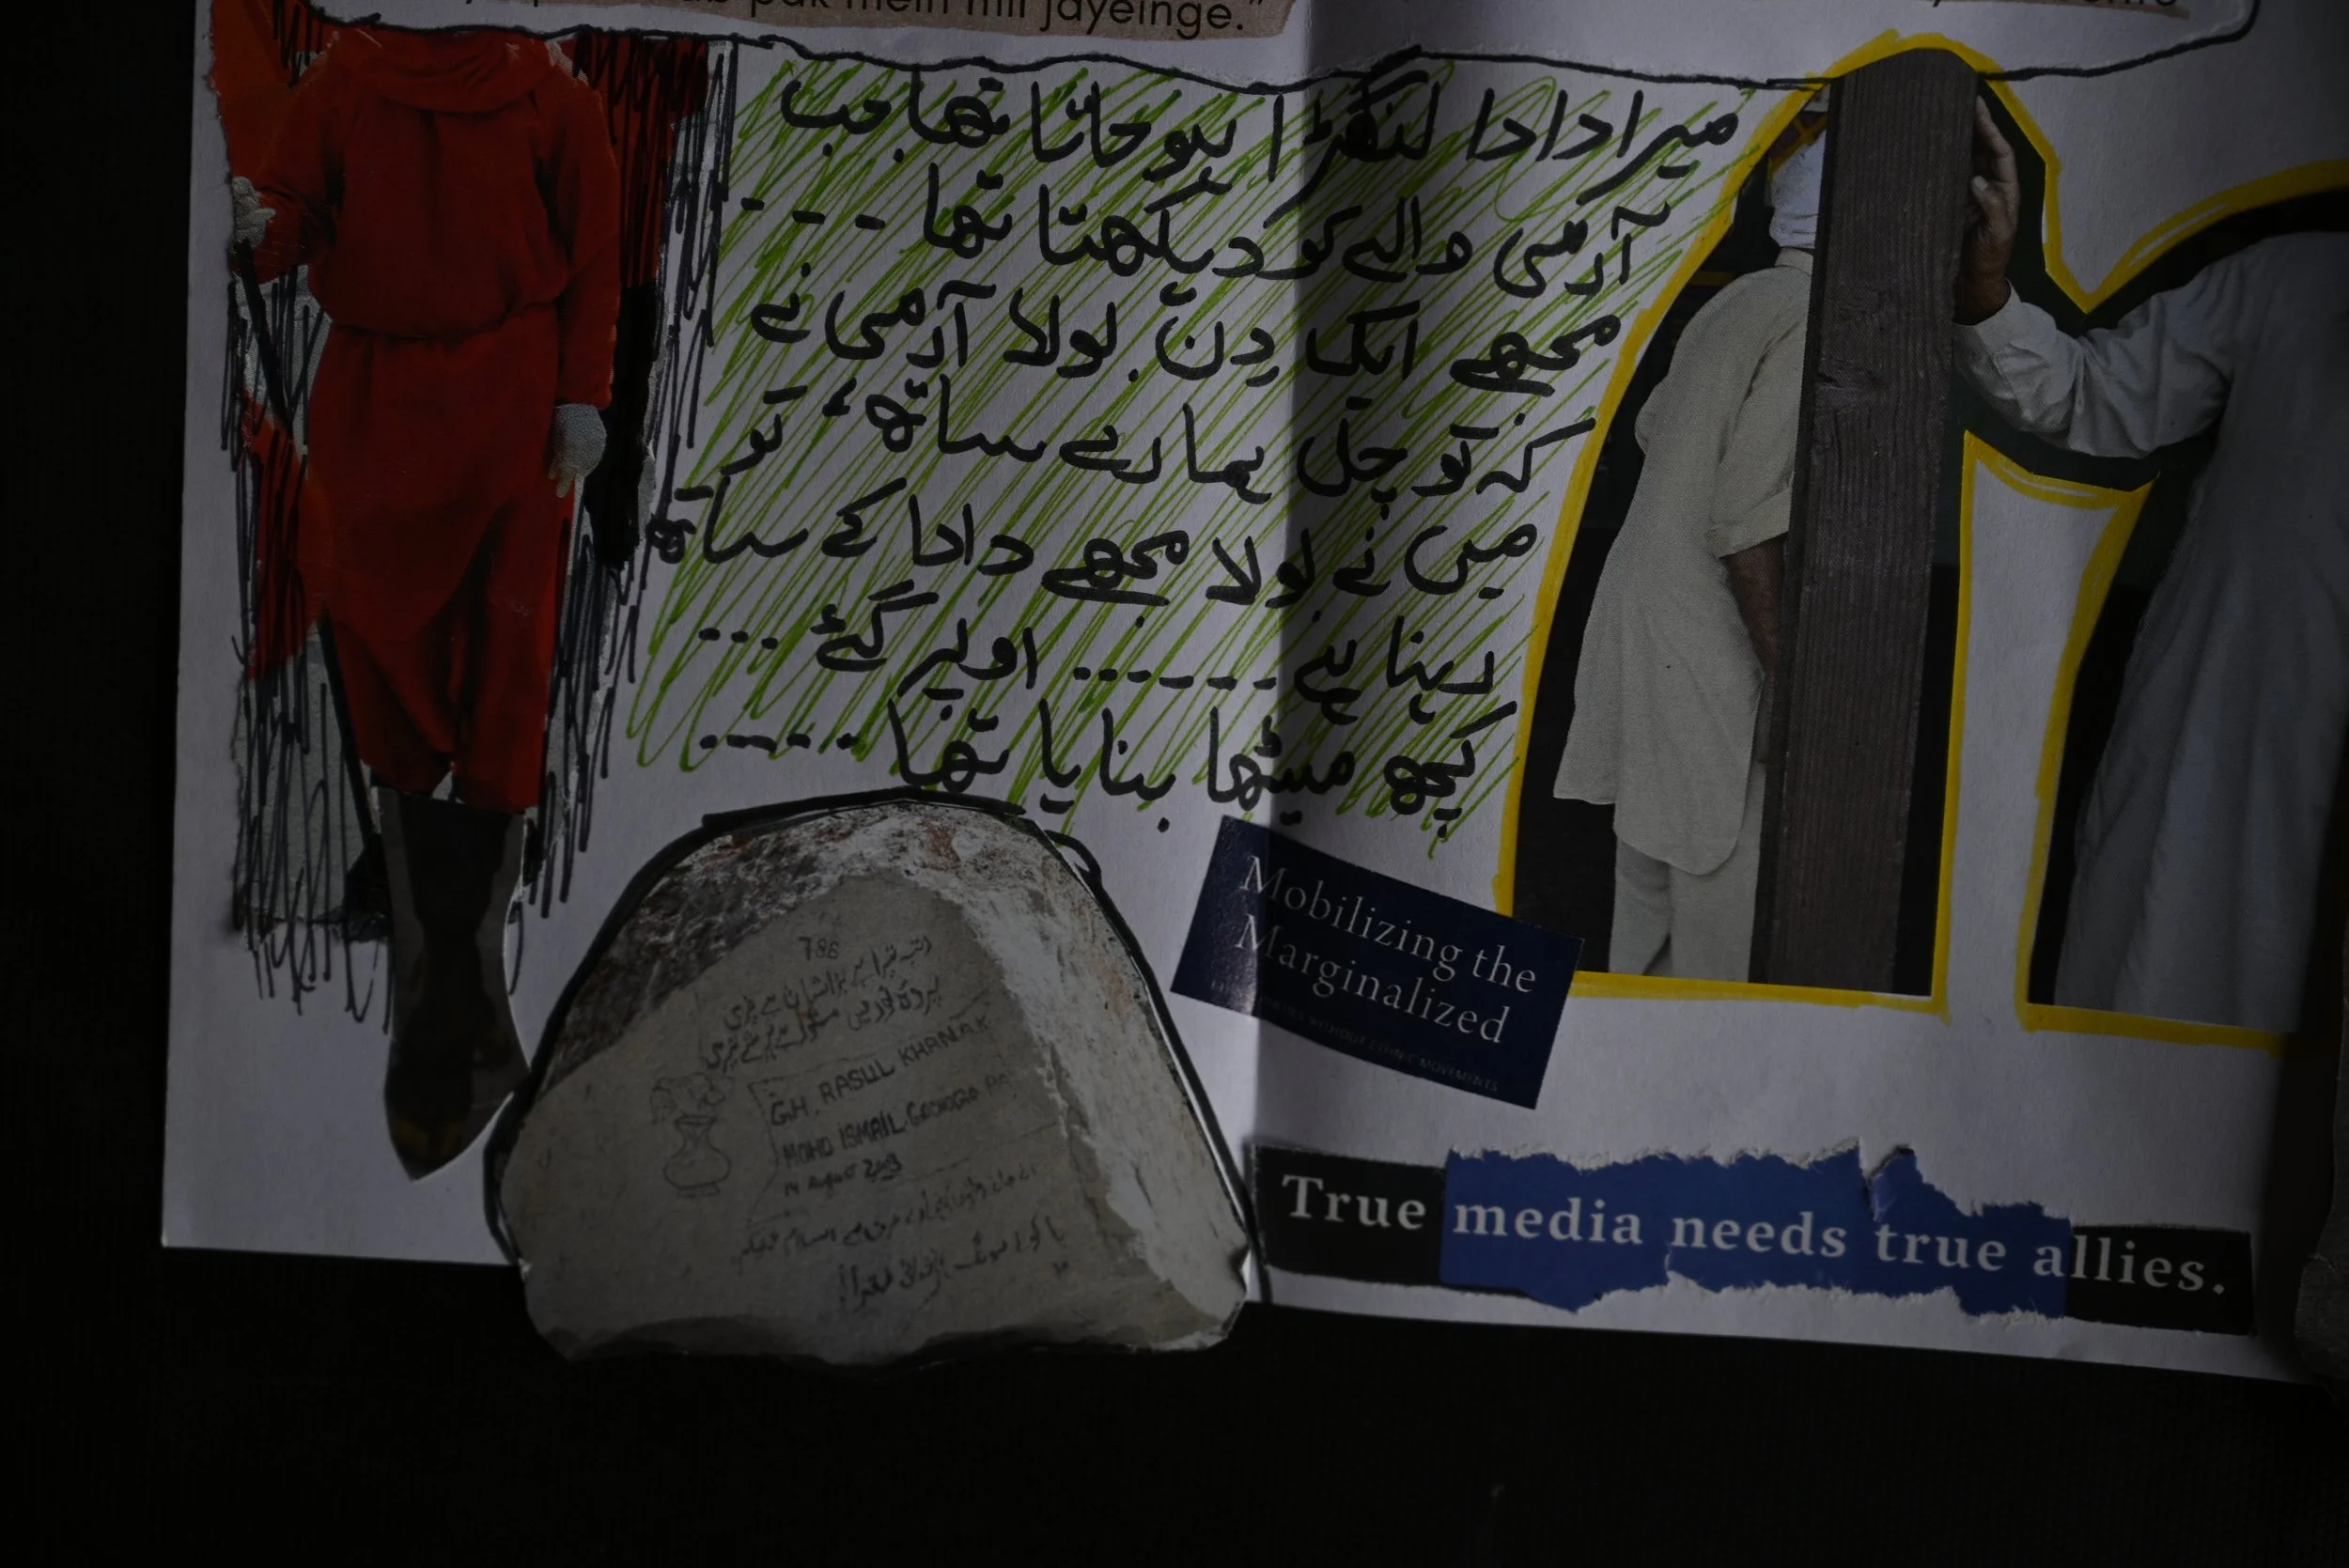 pak mein mil jayeinge."
میرا دادا لنگڑا ہو جاتا تھا جب
آرمی والے کو دیکھتا تھا ---
مجھے ایک دن بولا آرمی نے
کہ تو چل ہمارے ساتھ، تو
میں نے بولا مجھے دادا کے ساتھ
رہنا ہے ------ اوپر گئے ...
کچھ میٹھا بنایا تھا -----
Mobilizing the
Marginalized
WITHOUT ETHNIC MOVEMENTS
786
GH. RASUL KHAN
MOHD ISMAIL
14 August
True media needs true allies.